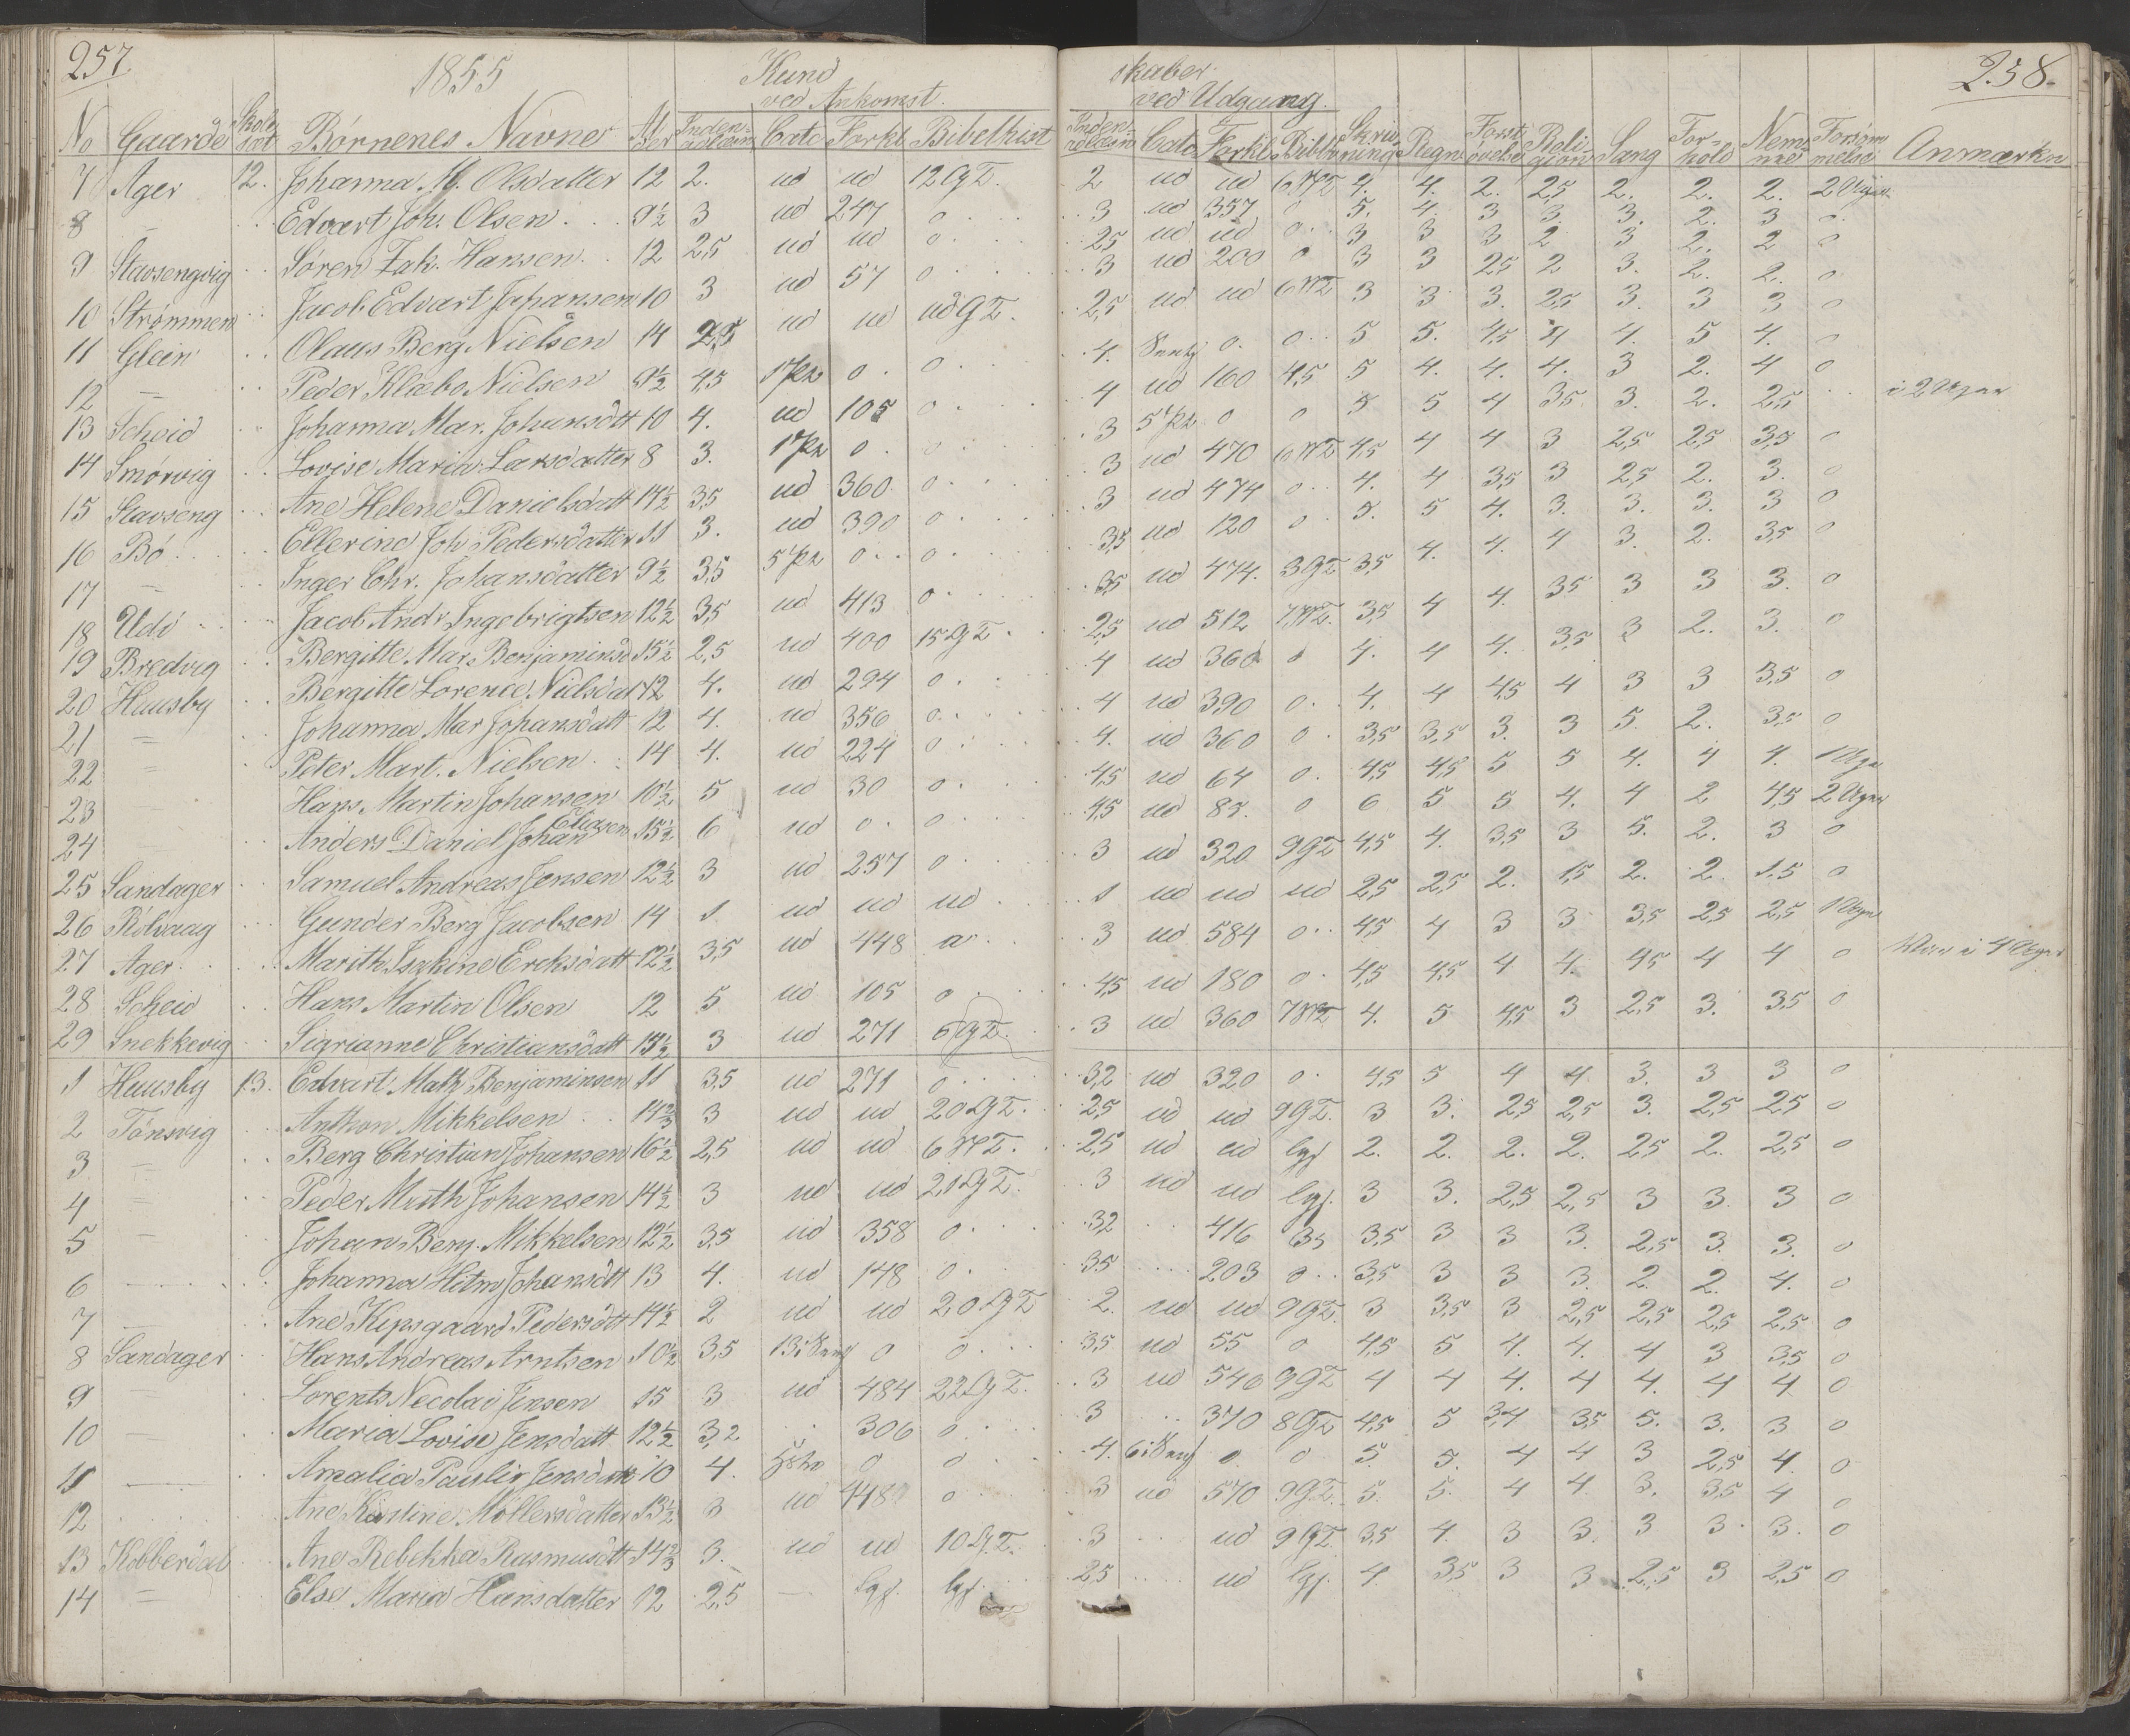 257
1855
Kund
ved Ankomst.
No Gaarde Skole sæt Børnenes Navne Alder Inden- adlæsn Catc Forkl Bibelhist
7 Ager 12. Johanna M. Olsdatter 12 2. ud ud 12 G T.
8 — Edvart Joh. Olsen 9½ 3 ud 247 0
9 Stavsengvig Søren Zak. Hansen 12 2,5 ud ud 0
10 Strømmen Jacob Edvart Johansen 10 3 ud 57 0
11 Glein Olaus Berg Nielsen 14 2,5 ud ud ud G T.
12 — Peder Klæbo Nielsen 9½ 4,5 1 Pa 0 0
13 Scheid Johanna Mar. Johansdtt 10 4. ud 105 0
14 Smørvig Lovise Maria Larsdatter 8 3. 1 Pa 0 0
15 Stavseng Ane Helene Danielsdatt 14½ 3,5 ud 360 0
16 Bø Ellerine Joh Pedersdatter 11 3. ud 390 0
17 — Inger Chr. Johansdatter 9½ 3,5 5 Pa 0 0
18 Udi Jacob Andr Ingebrigtsen 12½ 3,5 ud 413 0
19 Bredvig Bergitte Mar. Benjaminsd 15½ 2,5 ud 400 15 G T.
20 Huusby Bergitte Lorence Nielsdat 12 4. ud 294 0
21 — Johanna Mar Johansdatt 12 4. ud 356 0
22 — Peter Mart. Nielsen 14 4. ud 224 0
23 Hans Martin Johansen 10½ 5 ud 30 0
24 Anders Daniel Johan Eliasen 15½ 6 ud 0 0
25 Sandager Samuel Andreas Jensen 12½ 3 ud 257 0
26 Rølvaag Gunder Berg Jacobsen 14 1 ud ud ud
27 Ager Marith Isakine Ericksdatt 12½ 3,5 ud 448 0
28 Scheid Hans Martin Olsen 12 5 ud 105 0
29 Snekkevig Sigrianne Christiansdatt 13½ 3 ud 271 6 G T.
1 Huusby 13. Edvart Math Benjaminsen 11 3,5 ud 271 0
2 Tønsvig Anthon Mikkelsen 14 3 ud ud 20 G T.
3 — Berg Christian Johansen 16½ 2,5 ud ud 6 N T.
4 — Peder Math Johansen 14½ 3 ud ud 21 G T.
5 — Johan Benj. Mikkelsen 12½ 3,5 ud 358 0
6 Johanna Hitm Johansdtt 13 4. ud 148 0
7 — Ane Kipsgaard Pedersdtt 14½ 2 ud ud 20 G T
8 Sandager Hans Andreas Arntsen 10½ 3,5 0 0
9 — Lorents Necolai Jensen 15 3 ud 484 22 G T.
10 — Maria Lovise Jensdatt 12½ 3,2 306 0
11 — Amalia Paulin Jensdatt 10 4. 0 0
12 Ane Kirstine Møllersdatter 13½ 3 ud 448 0
13 Kobberdal Ane Rebekka Rasmusdtt 14 3. ud ud 10 G T.
14 — Else Maria Hansdatter 12 2,5 — lgf. lgf.
258.
skaber.
ved Udgang.
Inden- adlæsn Catc Forkl Bibl Skriv- ning Regn Forst øvelse Reli- gion Sang For- hold Nem- me Forsøm melse Anmærkn
2 ud ud 6 N T 4. 4. 2. 2,5 2. 2. 2. 2 Uger
3 ud 357 0 5. 4. 3 3. 3. 2. 3 0
2,5 ud ud 0 3 3 3 2 3 2. 2 0
3 ud 200 0 3 3 2,5 2 3. 2. 2. 0
2,5 ud ud 6 N T 3 3 3. 2,5 3. 3 3 0
4. 0. 0 5 5. 4,5 4 4. 5 4. 0
4 ud 160 4,5 5 4. 4. 4. 3 2. 4 0
3 5 Pa 0 0 5 5 4 3,5 3. 2. 2,5 i 2 Uger
3 ud 470 6 N T 4,5 4 4 3 2,5 2,5 3,5 0
3 ud 474 0 4. 4 3,5 3 2,5 2. 3. 0
3,5 ud 120 0 5. 5 4. 3. 3. 3. 3 0
3,5 ud 474. 3 G T 3,5 4. 4. 4 3. 2. 3,5 0
2,5 ud 512 7 N T. 3,5 4 4. 3,5 3 3 3. 0
4 ud 360 0 4. 4 4. 3,5 3 2. 3. 0
4 ud 390 0 4. 4 4,5 4 3 3 3,5 0
4. ud 360 0 3,5 3,5 3. 3 5. 2. 3,5 0
4,5 ud 64 0 4,5 4,5 5 5 4. 4 4. 1 Uge
4,5 ud 85. 0 6 5 5 4. 4 2 4,5 2 Uger
3 ud 320 9 G T 4,5 4. 3,5 3 5. 2. 3 0
1 ud ud ud 2,5 2,5 2. 1,5 2. 2. 1.5 0
3 ud 584 0 4,5 4 3 3 3,5 2,5 2,5 1 Uge
4,5 ud 180 0 4,5 4,5 4 4. 4,5 4 4 0 Var i 4 Uger
3 ud 360 7 N T 4. 5 4,5 3 2,5 3. 3,5 0
3,2 ud 320 0 4,5 5 4 4 3. 3 3 0
2,5 ud ud 9 G T. 3 3. 2,5 2,5 3. 2,5 2,5 0
2,5 ud ud lgf 2. 2. 2. 2. 2,5 2. 2,5 0
3 ud ud lgf. 3 3. 2,5 2,5 3 3 3 0
3,2 416 3,5 3,5 3 3 3. 2,5 3. 3. 0
3,5 203 0 3,5 3 3 3. 2. 2. 4. 0
2. ud ud 9 G T. 3 3,5 3 2,5 2,5 2,5 2,5 0
3,5 ud 55 0 4,5 5 4. 4. 4 3 3,5 0
3 ud 546 9 G T 4 4 4. 4 4. 4 4 0
3 370 8 G T 4,5 5 3,4 3,5 5. 3. 3 0
4. 0 0 5. 5. 4 4 3 2,5 4. 0
3 ud 570 9 G T. 5. 5. 4 4. 3. 3,5 4 0
3 ud 9 G T. 3,5 4. 3 3. 3 3. 3. 0
2,5 ud lgf. 4. 3,5 3 3 2,5 3 2,5 0